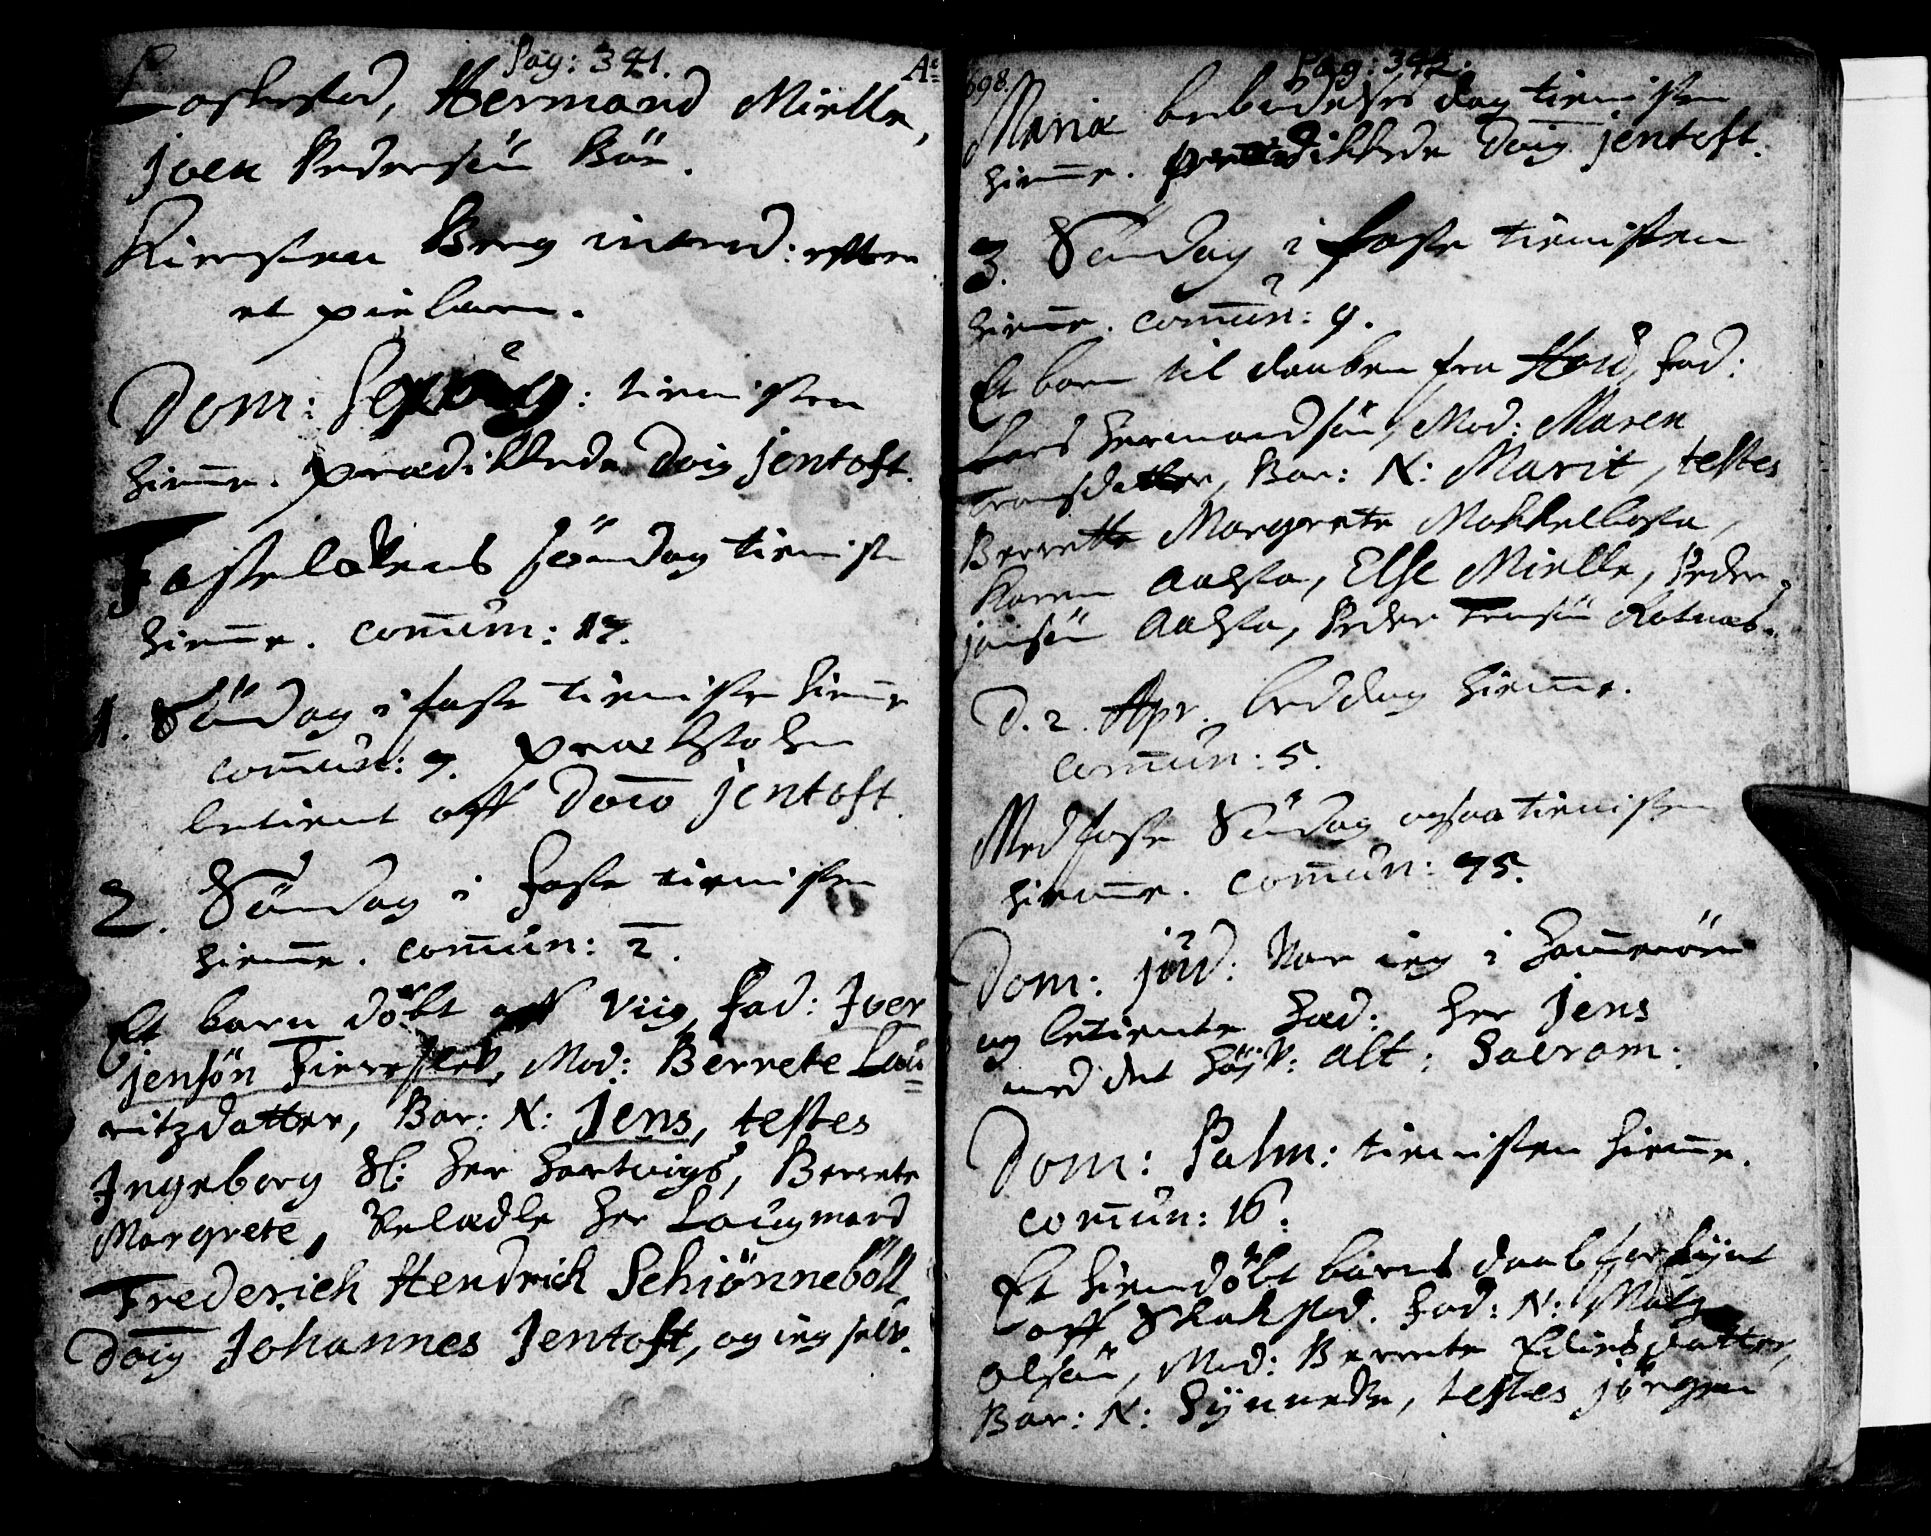 Pag: 341.
Aº
Loskestad, Hermand Mielle,
Joen Pedersön Böe.
Kiersten Berg introd: effter
et piebarn.
Dom: Sexag: tienisten
hiem̅e. prædikkede Doīg Jentoft.
Fastelavens söndag tieniste
hiem̅e. com̅un: 17.
1. Söndag i faste tienisten hiem̅e
com̅un: 7. prækstolen
betient aff Doīo Jentoft.
2. Söndag i faste tienisten
hiem̅e. com̅un: 2.
Et barn döbt aff Viig, fad: Iver
Jensön Mod: Berrete Lau=
ritzdatter, Bar: N: Jens, testes
Ingeborg Sl: Her Hartvigs, Berrete
Margrete, Velædle Her Laugmand
Frederich Hendrich Schiönneböll,
Doīg Johannes Jentoft, og ieg selv.
698. Pag: 342.
Mariæ bebudelses dag tienisten
hiem̅e. prædikkede Doīg Jentoft.
3. Söndag i faste tienisten
hiem̅e. com̅un: 9.
Et barn til daaben fra Hou, fad:
Lars Hermandsön, Mod: Maren
datter, Bar: N: Marit, testes
Berrette Margrete Mokkelbosta,
Karen Aalsta, Else Mielle, Peder
Jonsön Aalsta, Peder
D. 2. Apr. beddag hiem̅e.
com̅un: 5.
Medfaste Söndag ogsaa tienisten
hiem̅e. com̅un: 75.
Dom: Jud: Var ieg i Ham̅eröen
og betiente Fad: Her Jens
med det Höyv: Alt: Sacram:
Dom: Palm: tienisten hiem̅e.
com̅un: 16.
Et hiemdöbt barns daab forkynt
aff Skakstad. Fad: N: Matz
Olsön, Mod: Berrete Eliesdatter,
Bar: N: Synnede, testes Jörgen